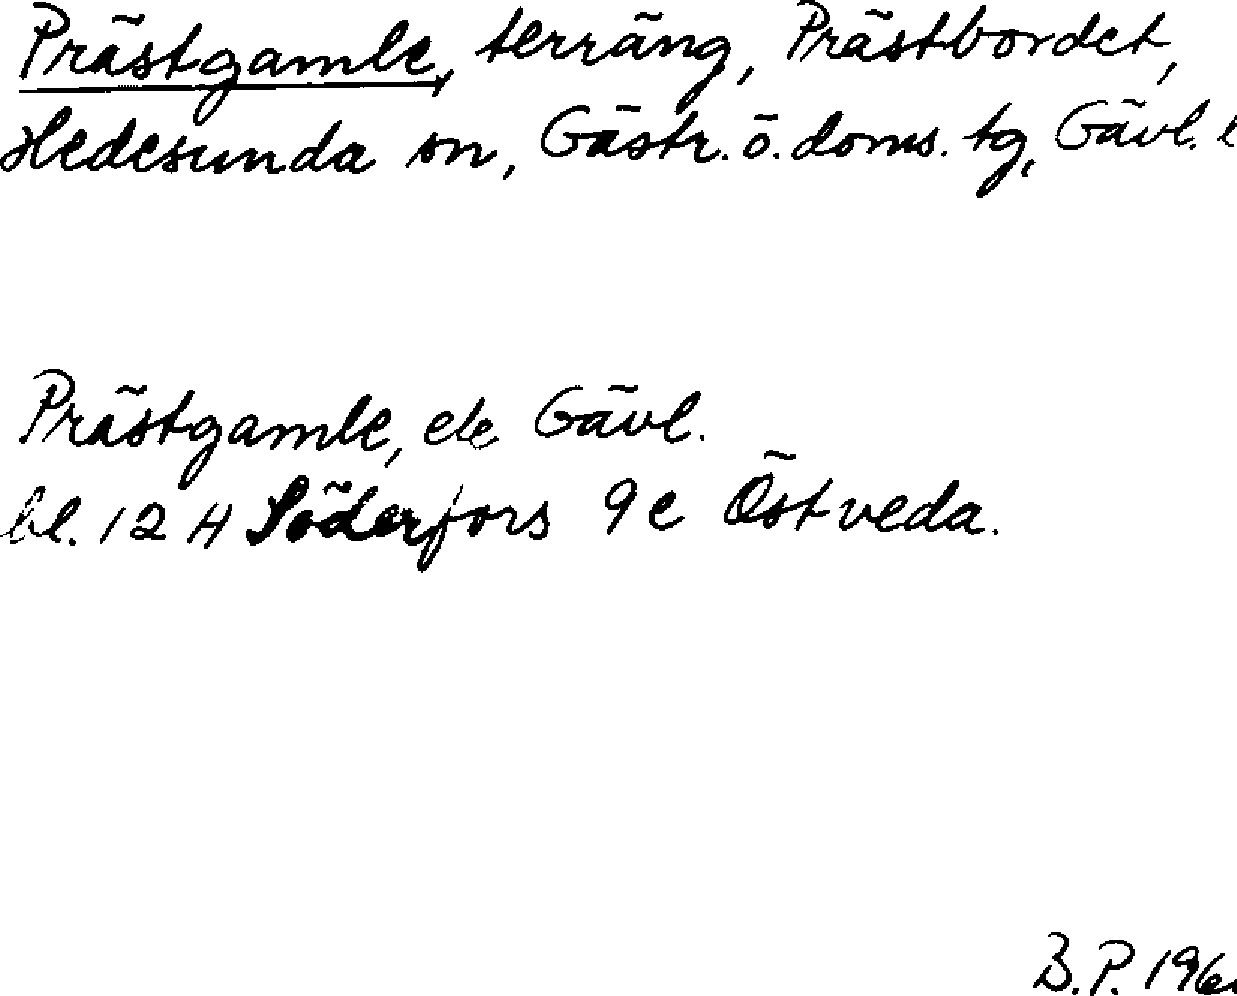 Prästgamle, terräng, Prästbordet,
Hedesunda sn, Gästr. ö. doms. tg, Gävl. l
Prästgamle, ek Gävl.
bl. 12 H Söderfors 9 e Östveda.
B.P. 196